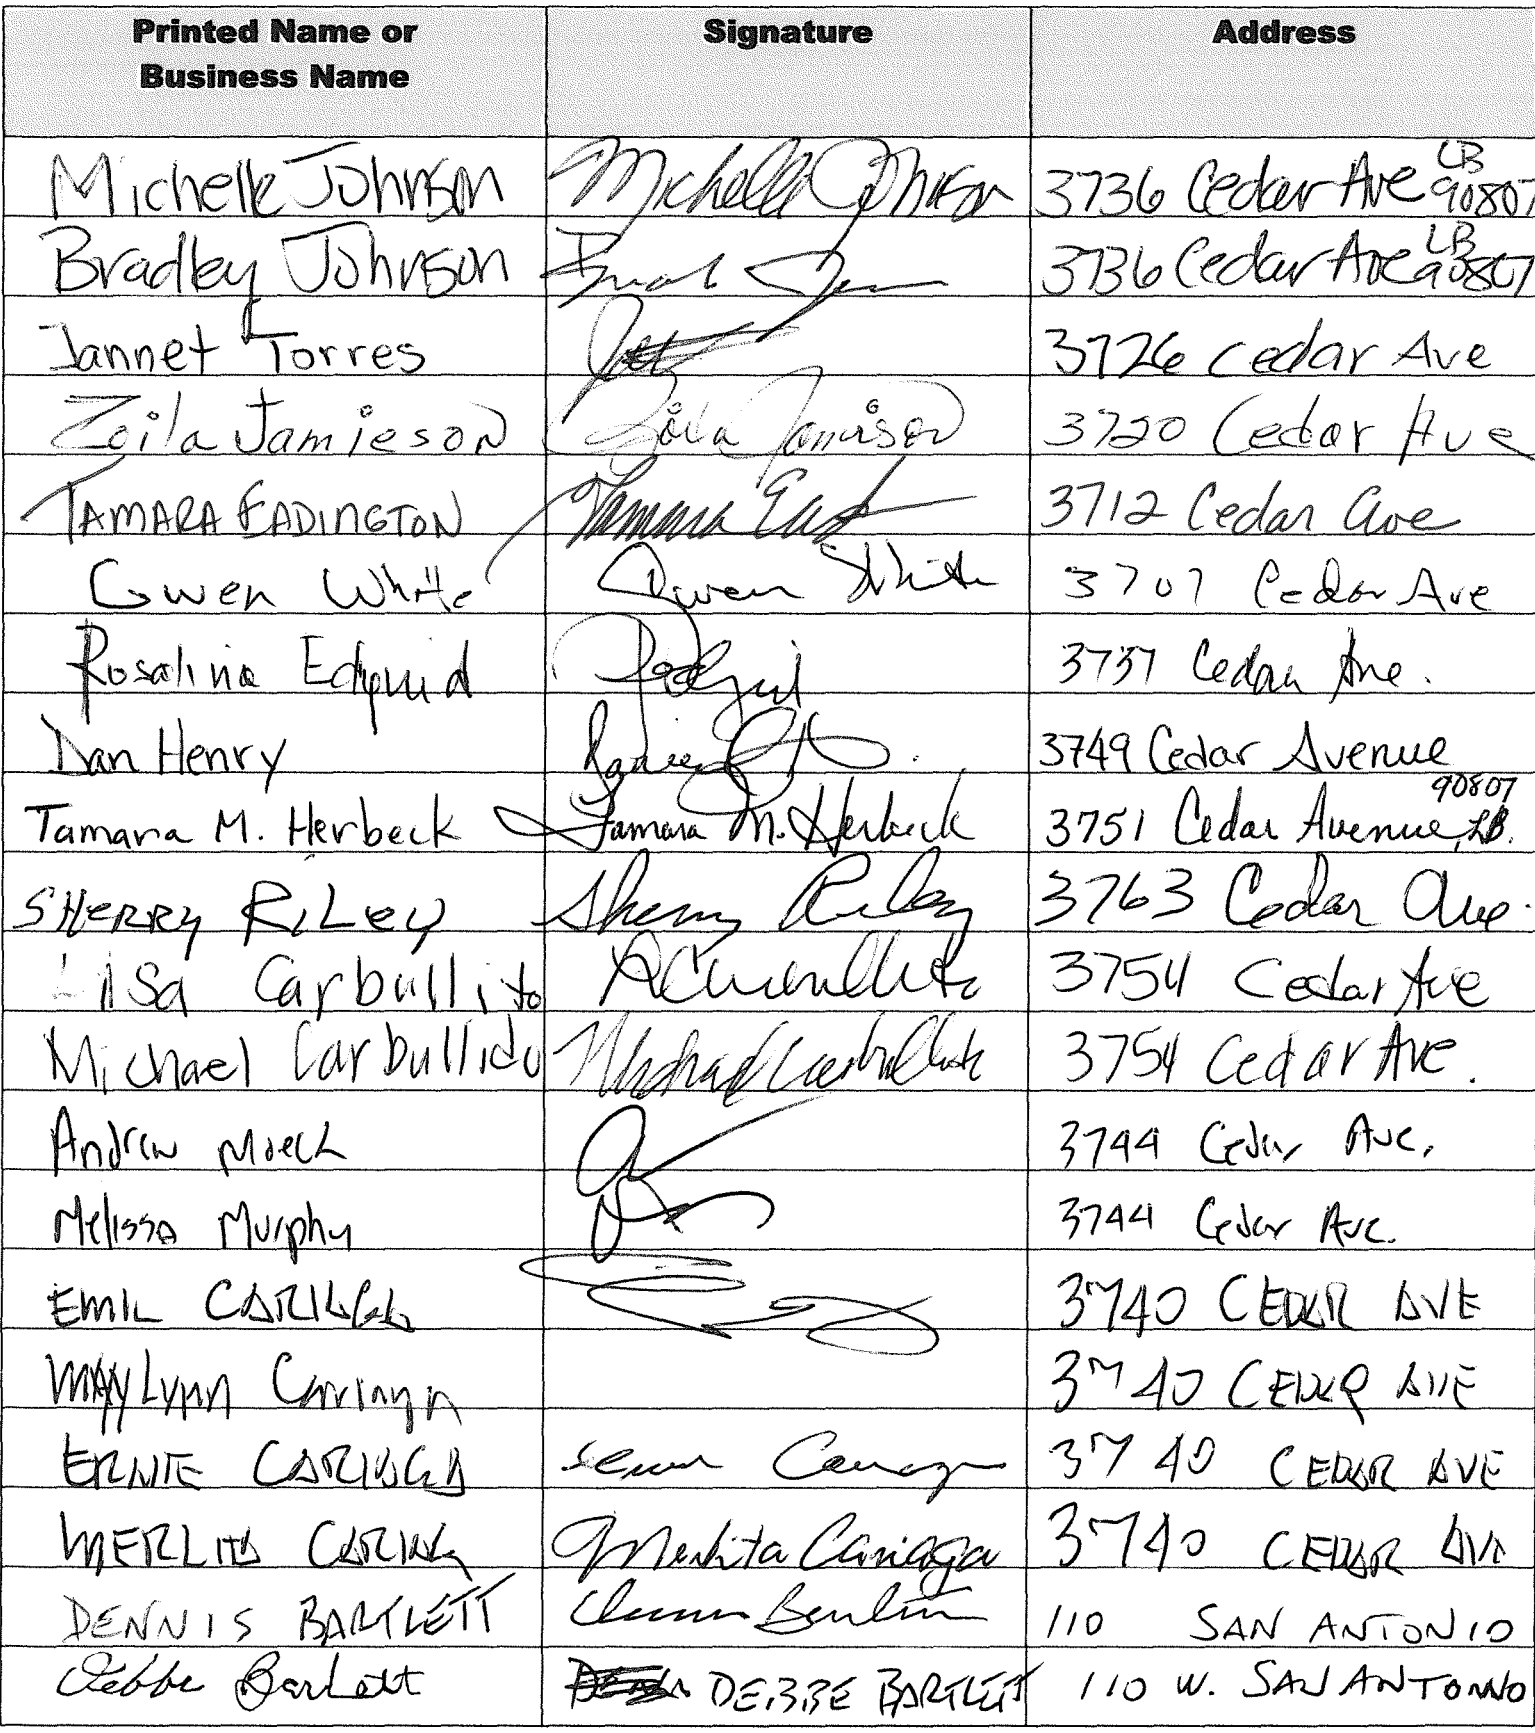 Printed Name or Signature Address
Business Name
Michelle Johnson Michelle Johnson 3736 Cedar Ave LB 90807
Bradley Johnson 3736 Cedar Ave LB 90807
Jannet Torres 3726 Cedar Ave
Zoila Jamieson Zoila Jamieson 3720 Cedar Ave
TAMARA EADINGTON Tamara 3712 Cedar Ave
Gwen White Gwen White 3707 Cedar Ave
Rosalina Edquid 3737 Cedar Ave.
Dan Henry 3749 Cedar Avenue
Tamara M. Herbeck Tamara M. Herbeck 3751 Cedar Avenue, LB. 90807
SHERRY RILEY Sherry Riley 3763 Cedar Ave.
Lisa Carbullito 3754 Cedar Ave
Michael Carbullido Michael 3754 Cedar Ave.
Andrew Moeck 3744 Cedar Ave.
Melissa Murphy 3744 Cedar Ave.
EMIL 3740 CEDAR AVE
MAYLYNN 3740 CEDAR AVE
ERNIE CARIAGA 3740 CEDAR AVE
MERLITA Merlita Cariaga 3740 CEDAR AVE
DENNIS BARTLETT 110 SAN ANTONIO
Debbe Bartlett DEBBE BARTLETT 110 W. SAN ANTONIO